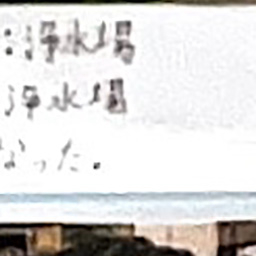 :浄水場
浄水場
なった。